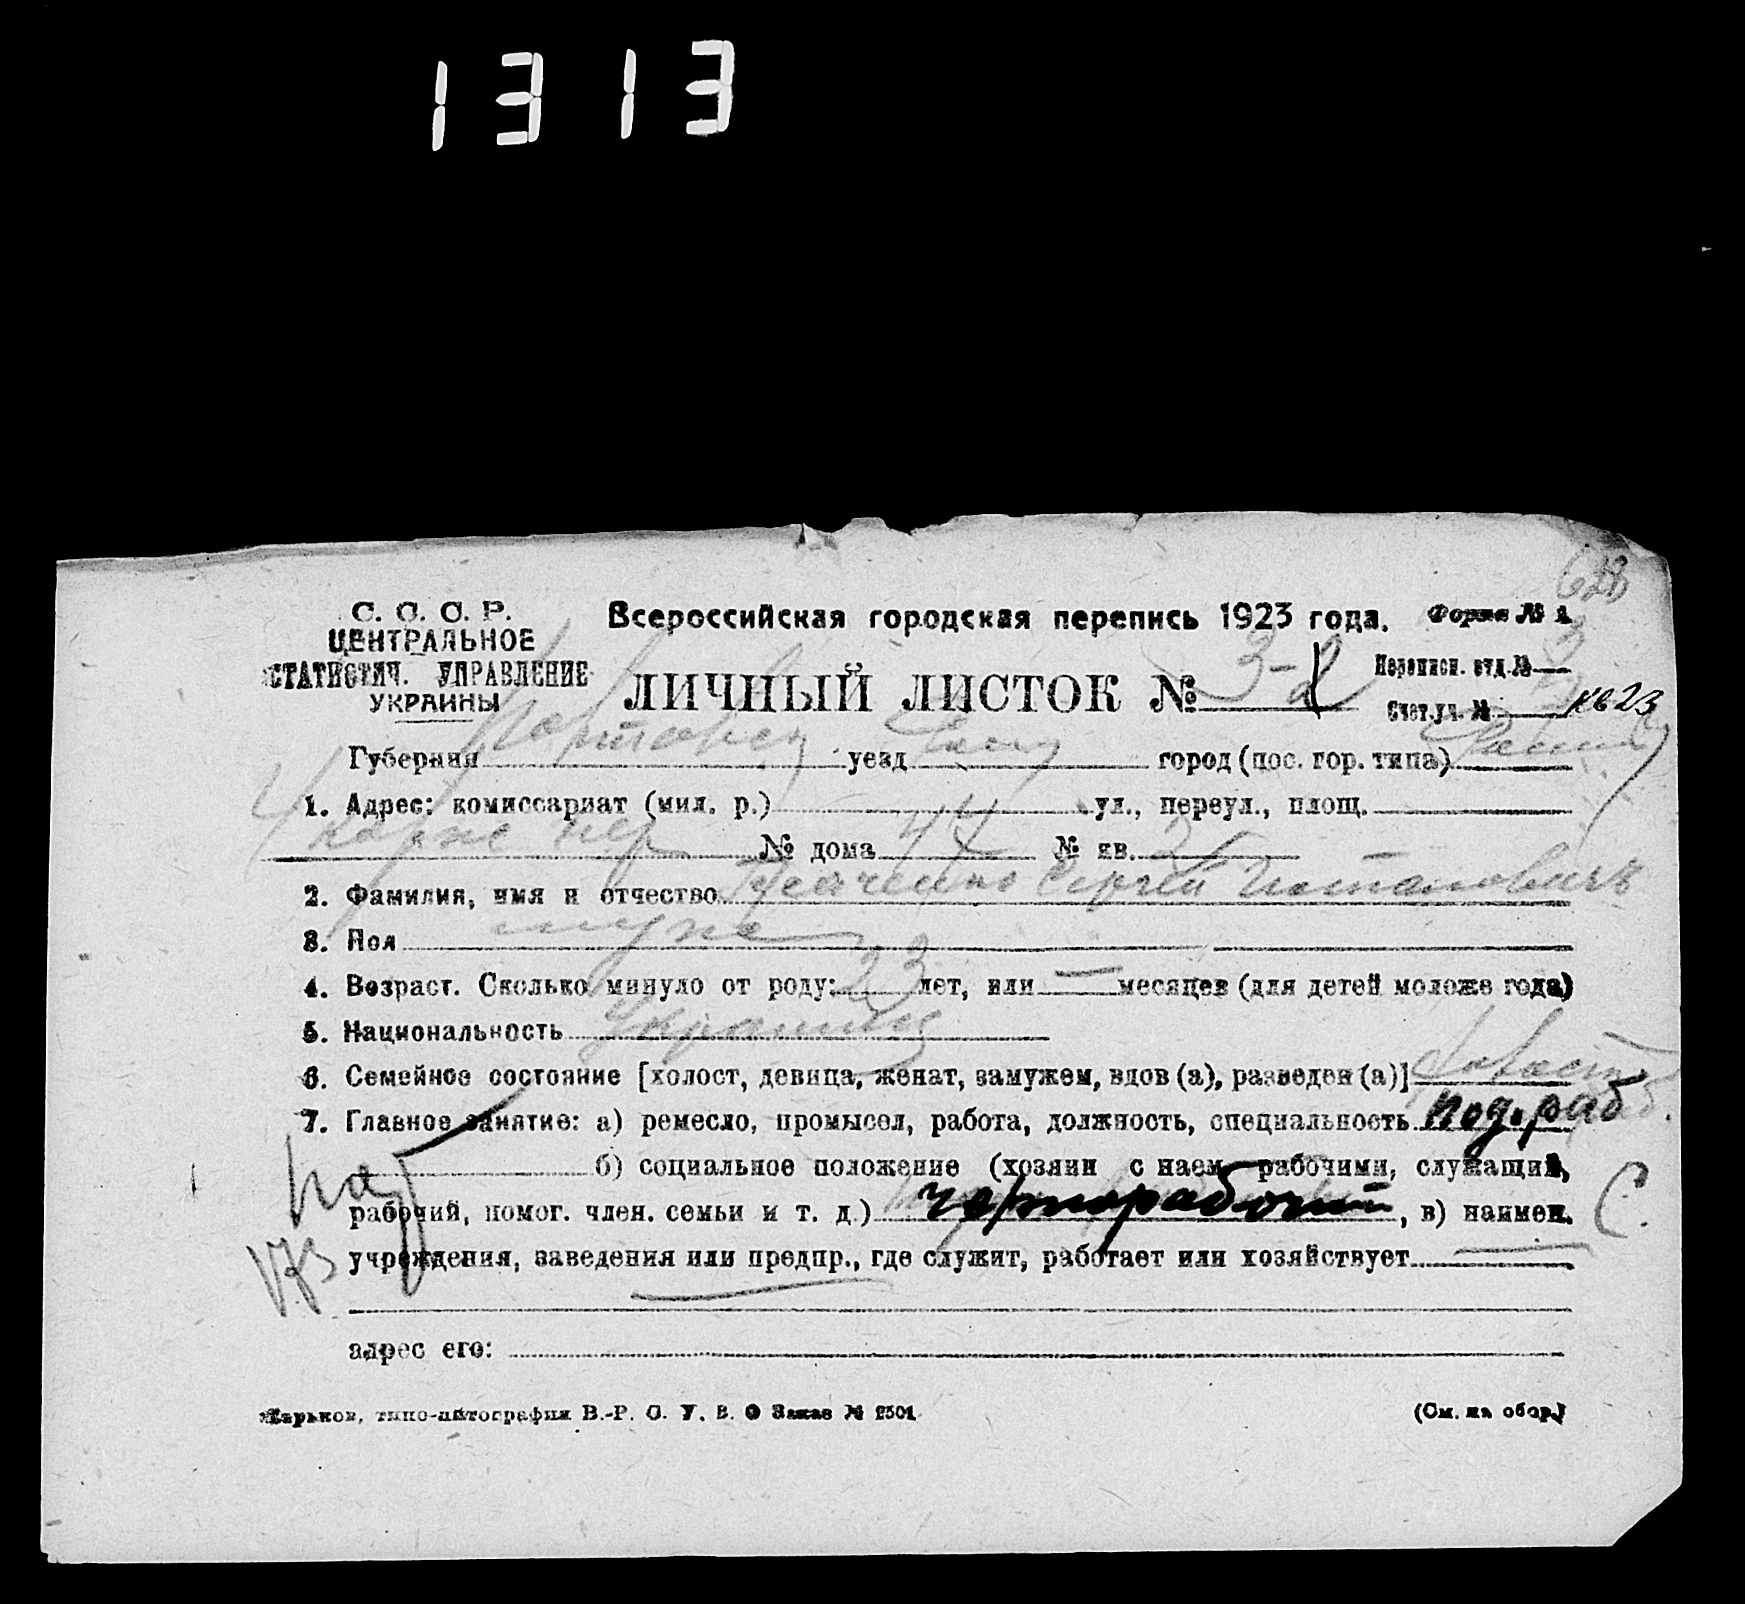 1313
628
С. С. С. Р.
ЦЕНТРАЛЬНОЕ
СТАТИСТИЧ. УПРАВЛЕНИЕ
УКРАИНЫ
Всероссийская городская перепись 1923 года. Форма № 1
Переписн. отд. № 3
ЛИЧНЫЙ ЛИСТОК № 3-2
Счетн. уч. №
Губерния уезд город (пос. гор. типа)
1. Адрес: комиссариат (мил. р.) ул., переул., площ.
пер № дома 44 № кв. 2
2. Фамилия, имя и отчество Сергей Потапович
3. Пол муж
4. Возраст. Сколько минуло от роду: 23 лет, или — месяцев (для детей моложе года)
5. Национальность Украинец
6. Семейное состояние [холост, девица, женат, замужем, вдов (а), разведен (а)] Холост
7. Главное занятие: а) ремесло, промысел, работа, должность, специальность под. раб
б) социальное положение (хозяин с наем. рабочими, служащий,
рабочий, помог. член. семьи и т. д.) чернорабочий, в) наимен.
учреждения, заведения или предпр., где служит, работает или хозяйствует
адрес его:
Харьков, типо-литография В.-Р. С. У. В. О Заказ № 2501
(См. на обор.)